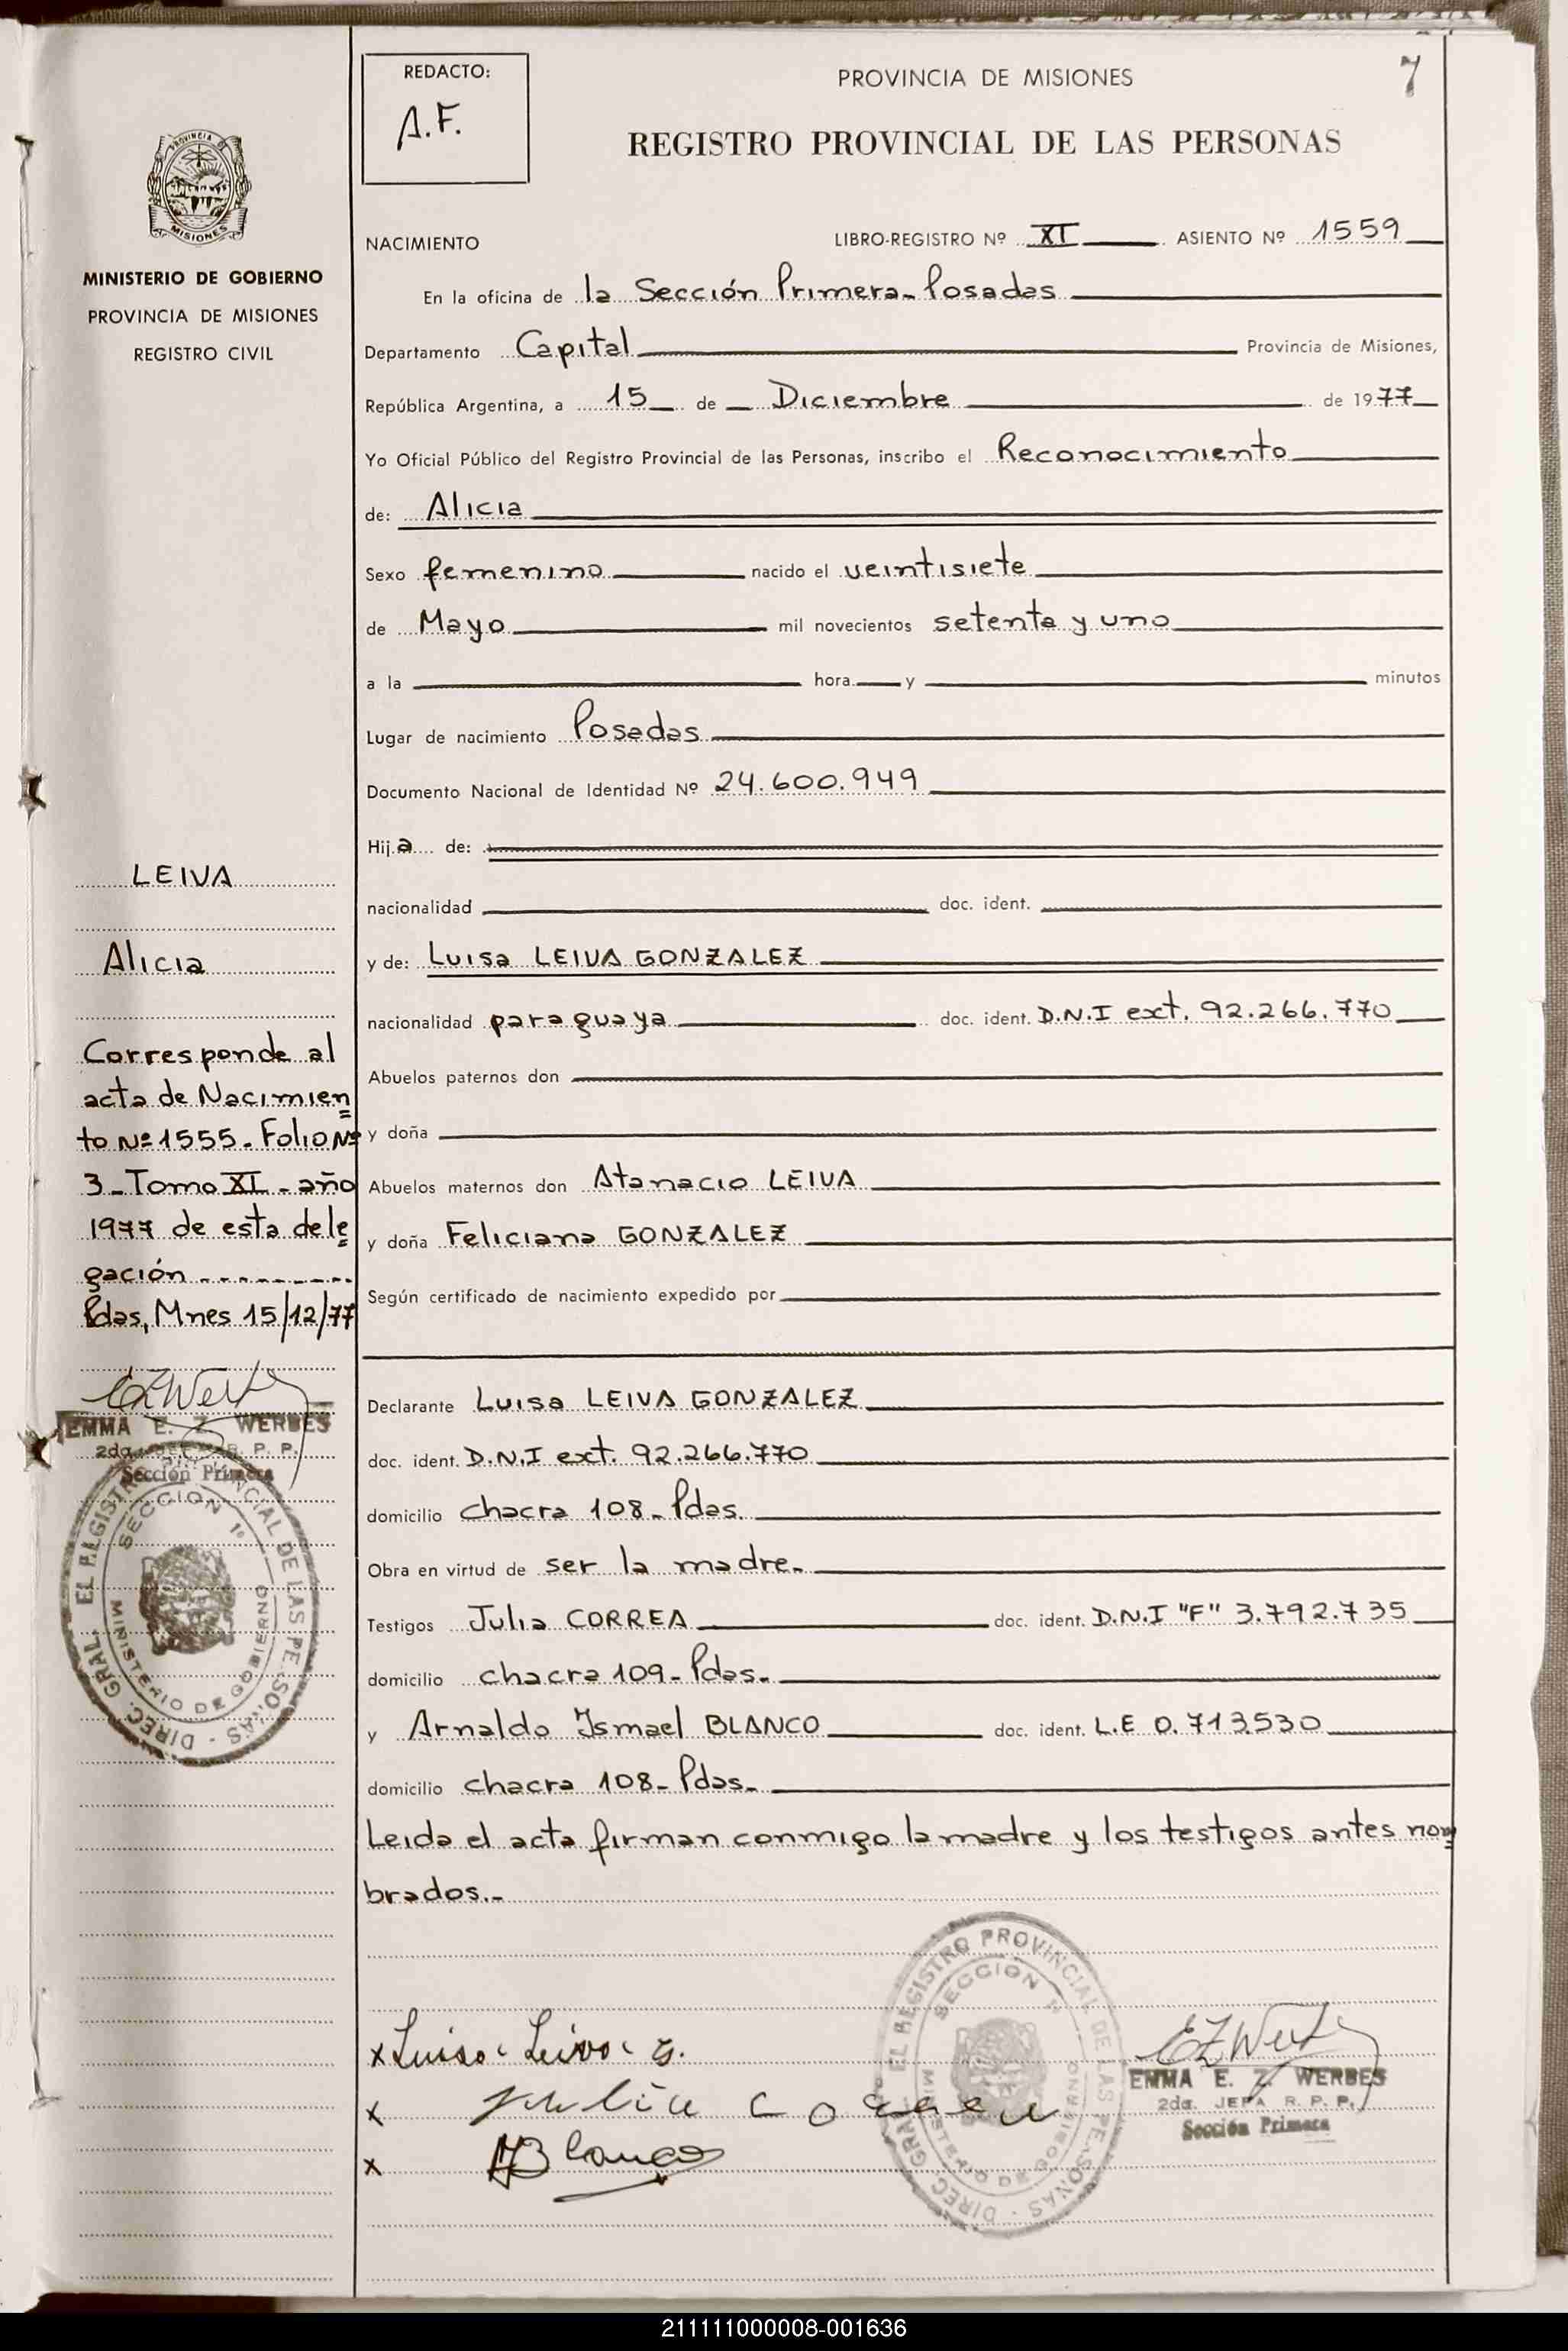 REDACTO:
A.F.
PROVINCIA DE MISIONES
7
REGISTRO PROVINCIAL DE LAS PERSONAS
PROVINCIA
MISIONES
MINISTERIO DE GOBIERNO
PROVINCIA DE MISIONES
REGISTRO CIVIL
NACIMIENTO LIBRO-REGISTRO Nº XI ASIENTO Nº 1559
En la oficina de la Sección Primera- Posadas
Departamento Capital Provincia de Misiones,
República Argentina, a 15 de Diciembre de 1977
Yo Oficial Público del Registro Provincial de las Personas, inscribo el Reconocimiento
de: Alicia
Sexo femenino nacido el veintisiete
de Mayo mil novecientos setenta y uno
a la hora y minutos
Lugar de nacimiento Posadas
Documento Nacional de Identidad Nº 24.600.949
Hija de:
nacionalidad doc. ident.
y de: Luisa LEIVA GONZALEZ
nacionalidad paraguaya doc. ident. D.N.I ext. 92.266.770
Abuelos paternos don
y doña
Abuelos maternos don Atanacio LEIVA
y doña Feliciana GONZALEZ
Según certificado de nacimiento expedido por
Declarante Luisa LEIVA GONZALEZ
doc. ident. D.N.I ext. 92.266.770
domicilio chacra 108- Pdas.
Obra en virtud de ser la madre.-
Testigos Julia CORREA doc. ident. D.N.I "F" 3.792.735
domicilio chacra 109- Pdas.-
y Arnaldo Ismael BLANCO doc. ident. L.E 0.713530
domicilio chacra 108- Pdas.-
Leida el acta firman conmigo la madre y los testigos antes nom
brados.-
LEIVA
Alicia
Corresponde al
acta de Nacimien
to Nº 1555- Folio Nº
3- Tomo XI - año
1977 de esta dele
gación
Pdas, Mnes 15/12/77
EZWerbes
EMMA E. Z. WERBES
2da. JEFA R. P. P.
Sección Primera
DIREC. GRAL. EL REGISTRO PROVINCIAL DE LAS PERSONAS
SECCION 1º
MINISTERIO DE GOBIERNO
x Luisa Leiva G.
x Julia Correa
x ABlanco
DIREC. GRAL. EL REGISTRO PROVINCIAL DE LAS PERSONAS
SECCION 1º
MINISTERIO DE GOBIERNO
EZWerbes
EMMA E. Z. WERBES
2da. JEFA R. P. P.
Sección Primera
211111000008-001636